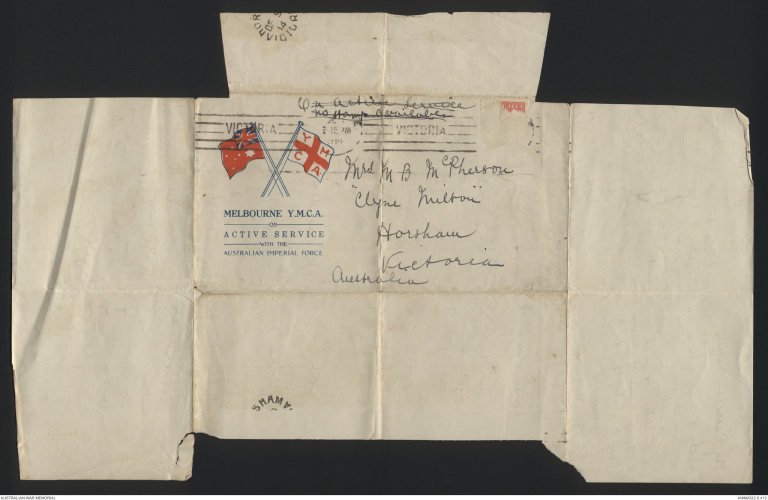 On active Service
no stamp available
VICTORIA
2 15 PM
VICTORIA
Y M C A
Mrs M B McPherson
"Clyne Milton"
Horsham
Victoria
Australia
MELBOURNE Y.M.C.A.
ON
ACTIVE SERVICE
WITH THE
AUSTRALIAN IMPERIAL FORCE
SHAM
AUSTRALIAN WAR MEMORIAL